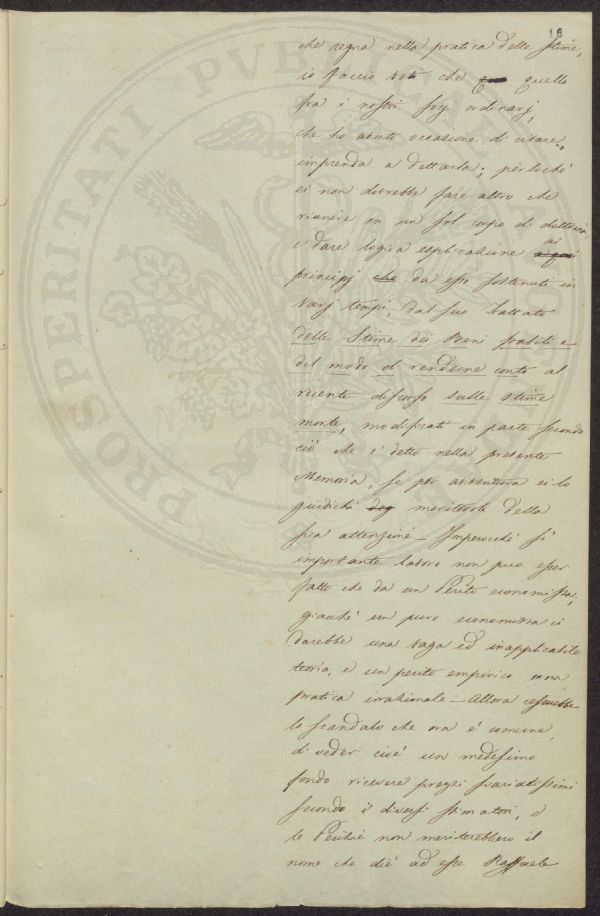 16
che regna nella pratica delle stime,
io faccio voti che que quello
fra i nostri socj ordinarj,
che ho avuto occasione di citare,
imprenda a dettarla; perlochè
ei non dovrebbe fare altro che
riunire in un sol corpo di dottrina,
e dare logica esplicazione ai
principj che da esso sostenuti in
varj tempi, dal suo Trattato
delle Stime dei Beni stabili e
del modo di renderne conto al
recente discorso sulle stime
morte, modificati in parte secondo
ciò che è detto nella presente
Memoria, se per avventura ei lo
giudichi deg meritevole della
sua attenzione — Imperocchè sì
importante lavoro non può esser
fatto che da un Perito economista,
giacchè un puro economista ci
darebbe una vaga ed inapplicabile
teoria, e un perito empirico una
pratica irrazionale — Allora cesserebbe
lo scandalo che ora è comune,
di veder cioè un medesimo
fondo ricevere prezzi svariatissimi
secondo i diversi stimatori, e
le Perizie non meriterebbero il
nome che diè ad esse Raffaele
PROSPERITATI PUBLICAE